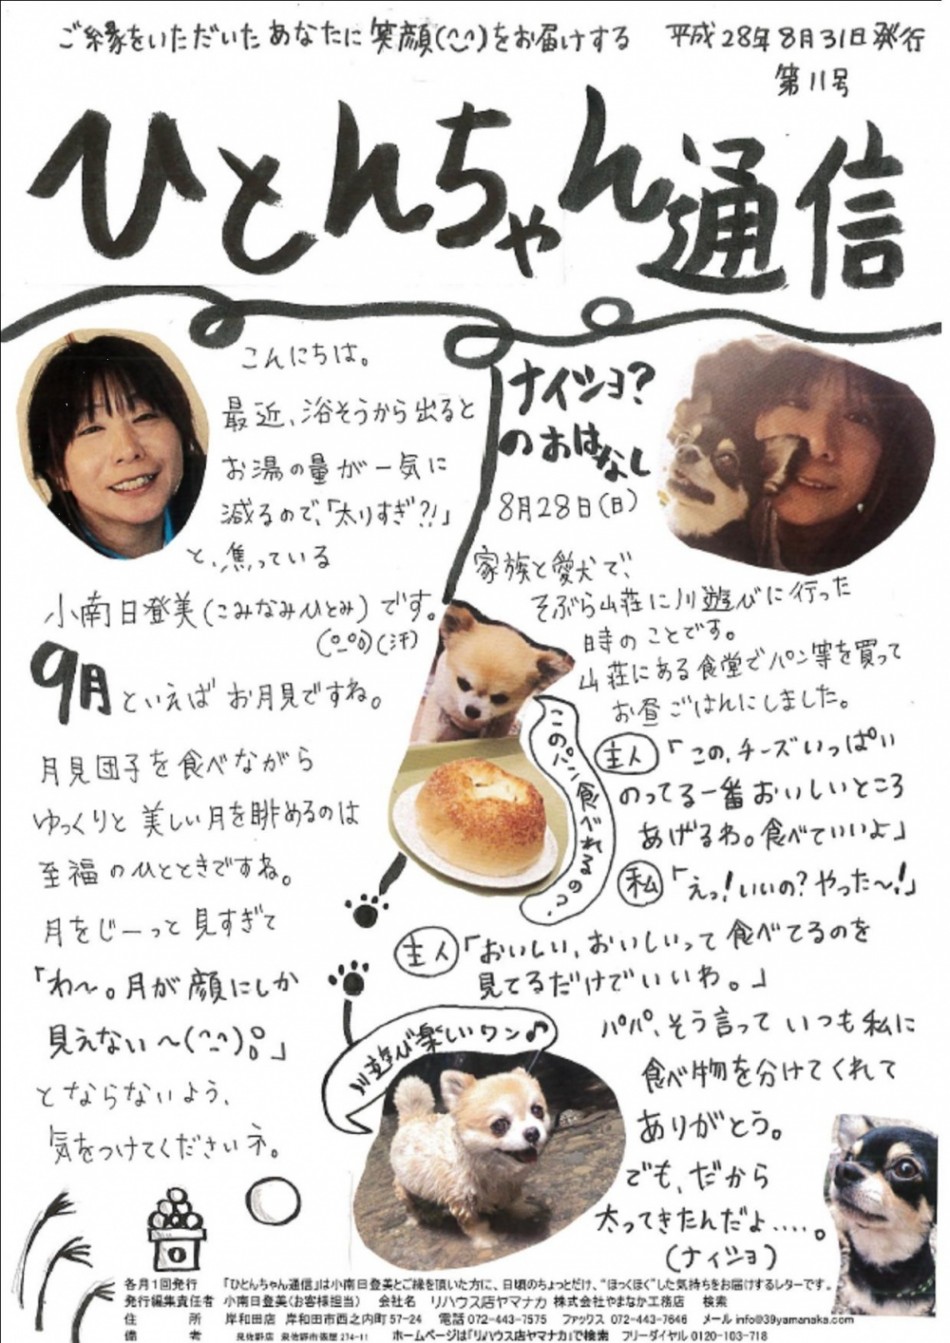 ご縁をいただいたあなたに笑顔(^-^)をお届けする
平成28年8月31日発行
第11号
ひとんちゃん通信
こんにちは。
最近、浴そうから出ると
お湯の量が一気に
減るので、「太りすぎ?!」
と、焦っている
小南日登美(こみなみひとみ)です。
(汗)
9月といえばお月見ですね。
月見団子を食べながら
ゆっくりと美しい月を眺めるのは
至福のひとときですね。
月をじーっと見すぎて
「わ〜。月が顔にしか
見えない〜(^-^)。」
とならないよう、
気をつけてくださいネ。
ナイショ?
のおはなし
8月28日(日)
家族と愛犬で、
そぶら山荘に川遊びに行った
時のことです。
山荘にある食堂でパン等を買って
お昼ごはんにしました。
このパン食べれるの?
主人「この、チーズいっぱい
のってる一番おいしいところ
あげるわ。食べていいよ」
私「えっ!いいの?やった〜!」
主人「おいしい、おいしいって食べてるのを
見てるだけでいいわ。」
川遊び楽しいワン♪
パパ、そう言っていつも私に
食べ物を分けてくれて
ありがとう。
でも、だから
太ってきたんだよ....。
(ナイショ)
各月1回発行 「ひとんちゃん通信」は小南日登美とご縁を頂いた方に、日頃のちょっとだけ、"ほっくほく"した気持ちをお届けするレターです。
発行編集責任者 小南日登美(お客様担当) 会社名 リハウス店ヤマナカ 株式会社やまなか工務店 検索
住 所 岸和田店 岸和田市西之内町57-24 電話 072-443-7575 ファックス 072-443-7646 メール info@39yamanaka.com
備 考 泉佐野店 ホームページは「リハウス店ヤマナカ」で検索 フリーダイヤル 0120-103-718